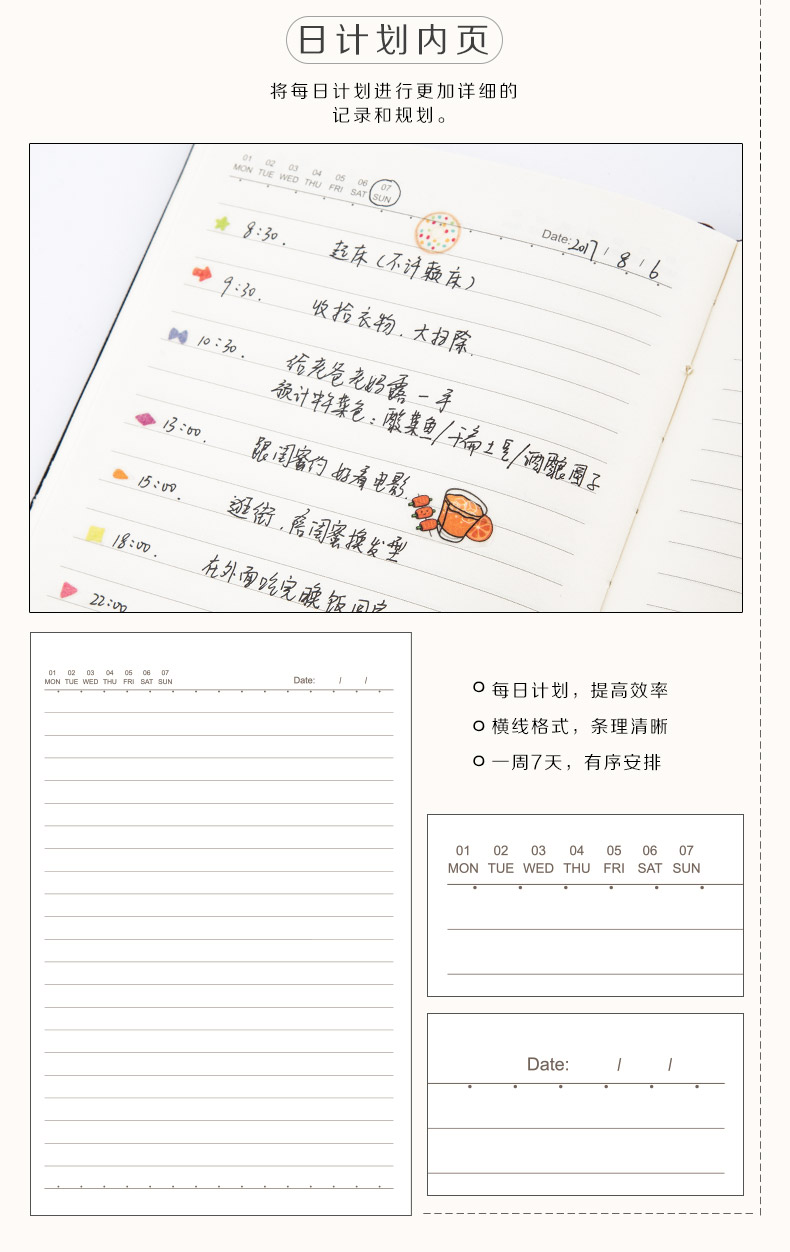 日计划内页
将每日计划进行更加详细的
记录和规划。
01 02 03 04 05 06 07
MON TUE WED THU FRI SAT SUN
Date: 2017 / 8 / 6
8:30. 起床（不许赖床）
9:30. 收拾衣物．大扫除．
10:30. 给老爸老妈露一手
预计菜色：酸菜鱼/干煸土豆/酒酿圆子
13:00. 跟闺蜜约好看电影
15:00. 逛街．陪闺蜜换发型
18:00. 在外面吃完晚饭回家
22:00
01 02 03 04 05 06 07
MON TUE WED THU FRI SAT SUN
Date: / /
每日计划，提高效率
横线格式，条理清晰
一周7天，有序安排
01 02 03 04 05 06 07
MON TUE WED THU FRI SAT SUN
Date: / /